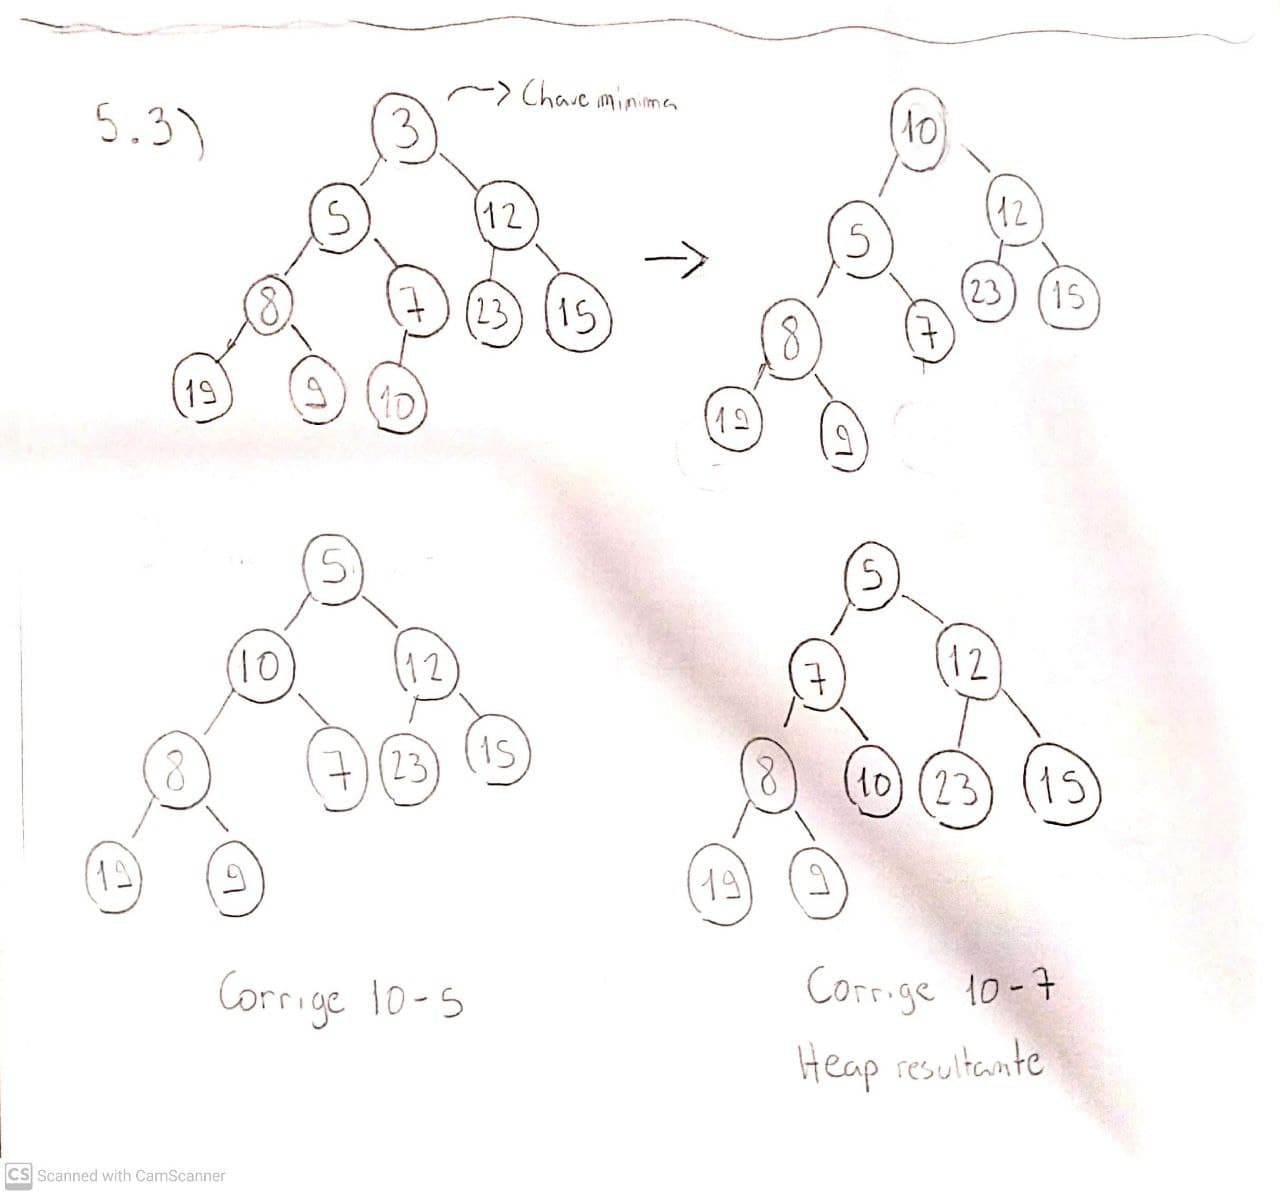 5.3)
3 → Chave minima
5 12
8 7 23 15
19 9 10
→
10
5 12
8 7 23 15
19 9
5
10 12
8 7 23 15
19 9
Corrige 10-5
5
7 12
8 10 23 15
19 9
Corrige 10-7
Heap resultante
CS Scanned with CamScanner